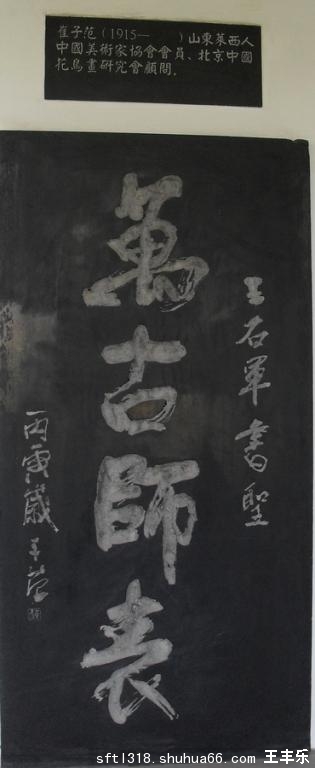 崔子范(1915— )山東萊西人
中國美術家協會會員、北京中國
花鳥畫研究會顧問.
王右軍書聖
萬古師表
丙寅歲子范
sftl318.shuhua66.com 王丰乐